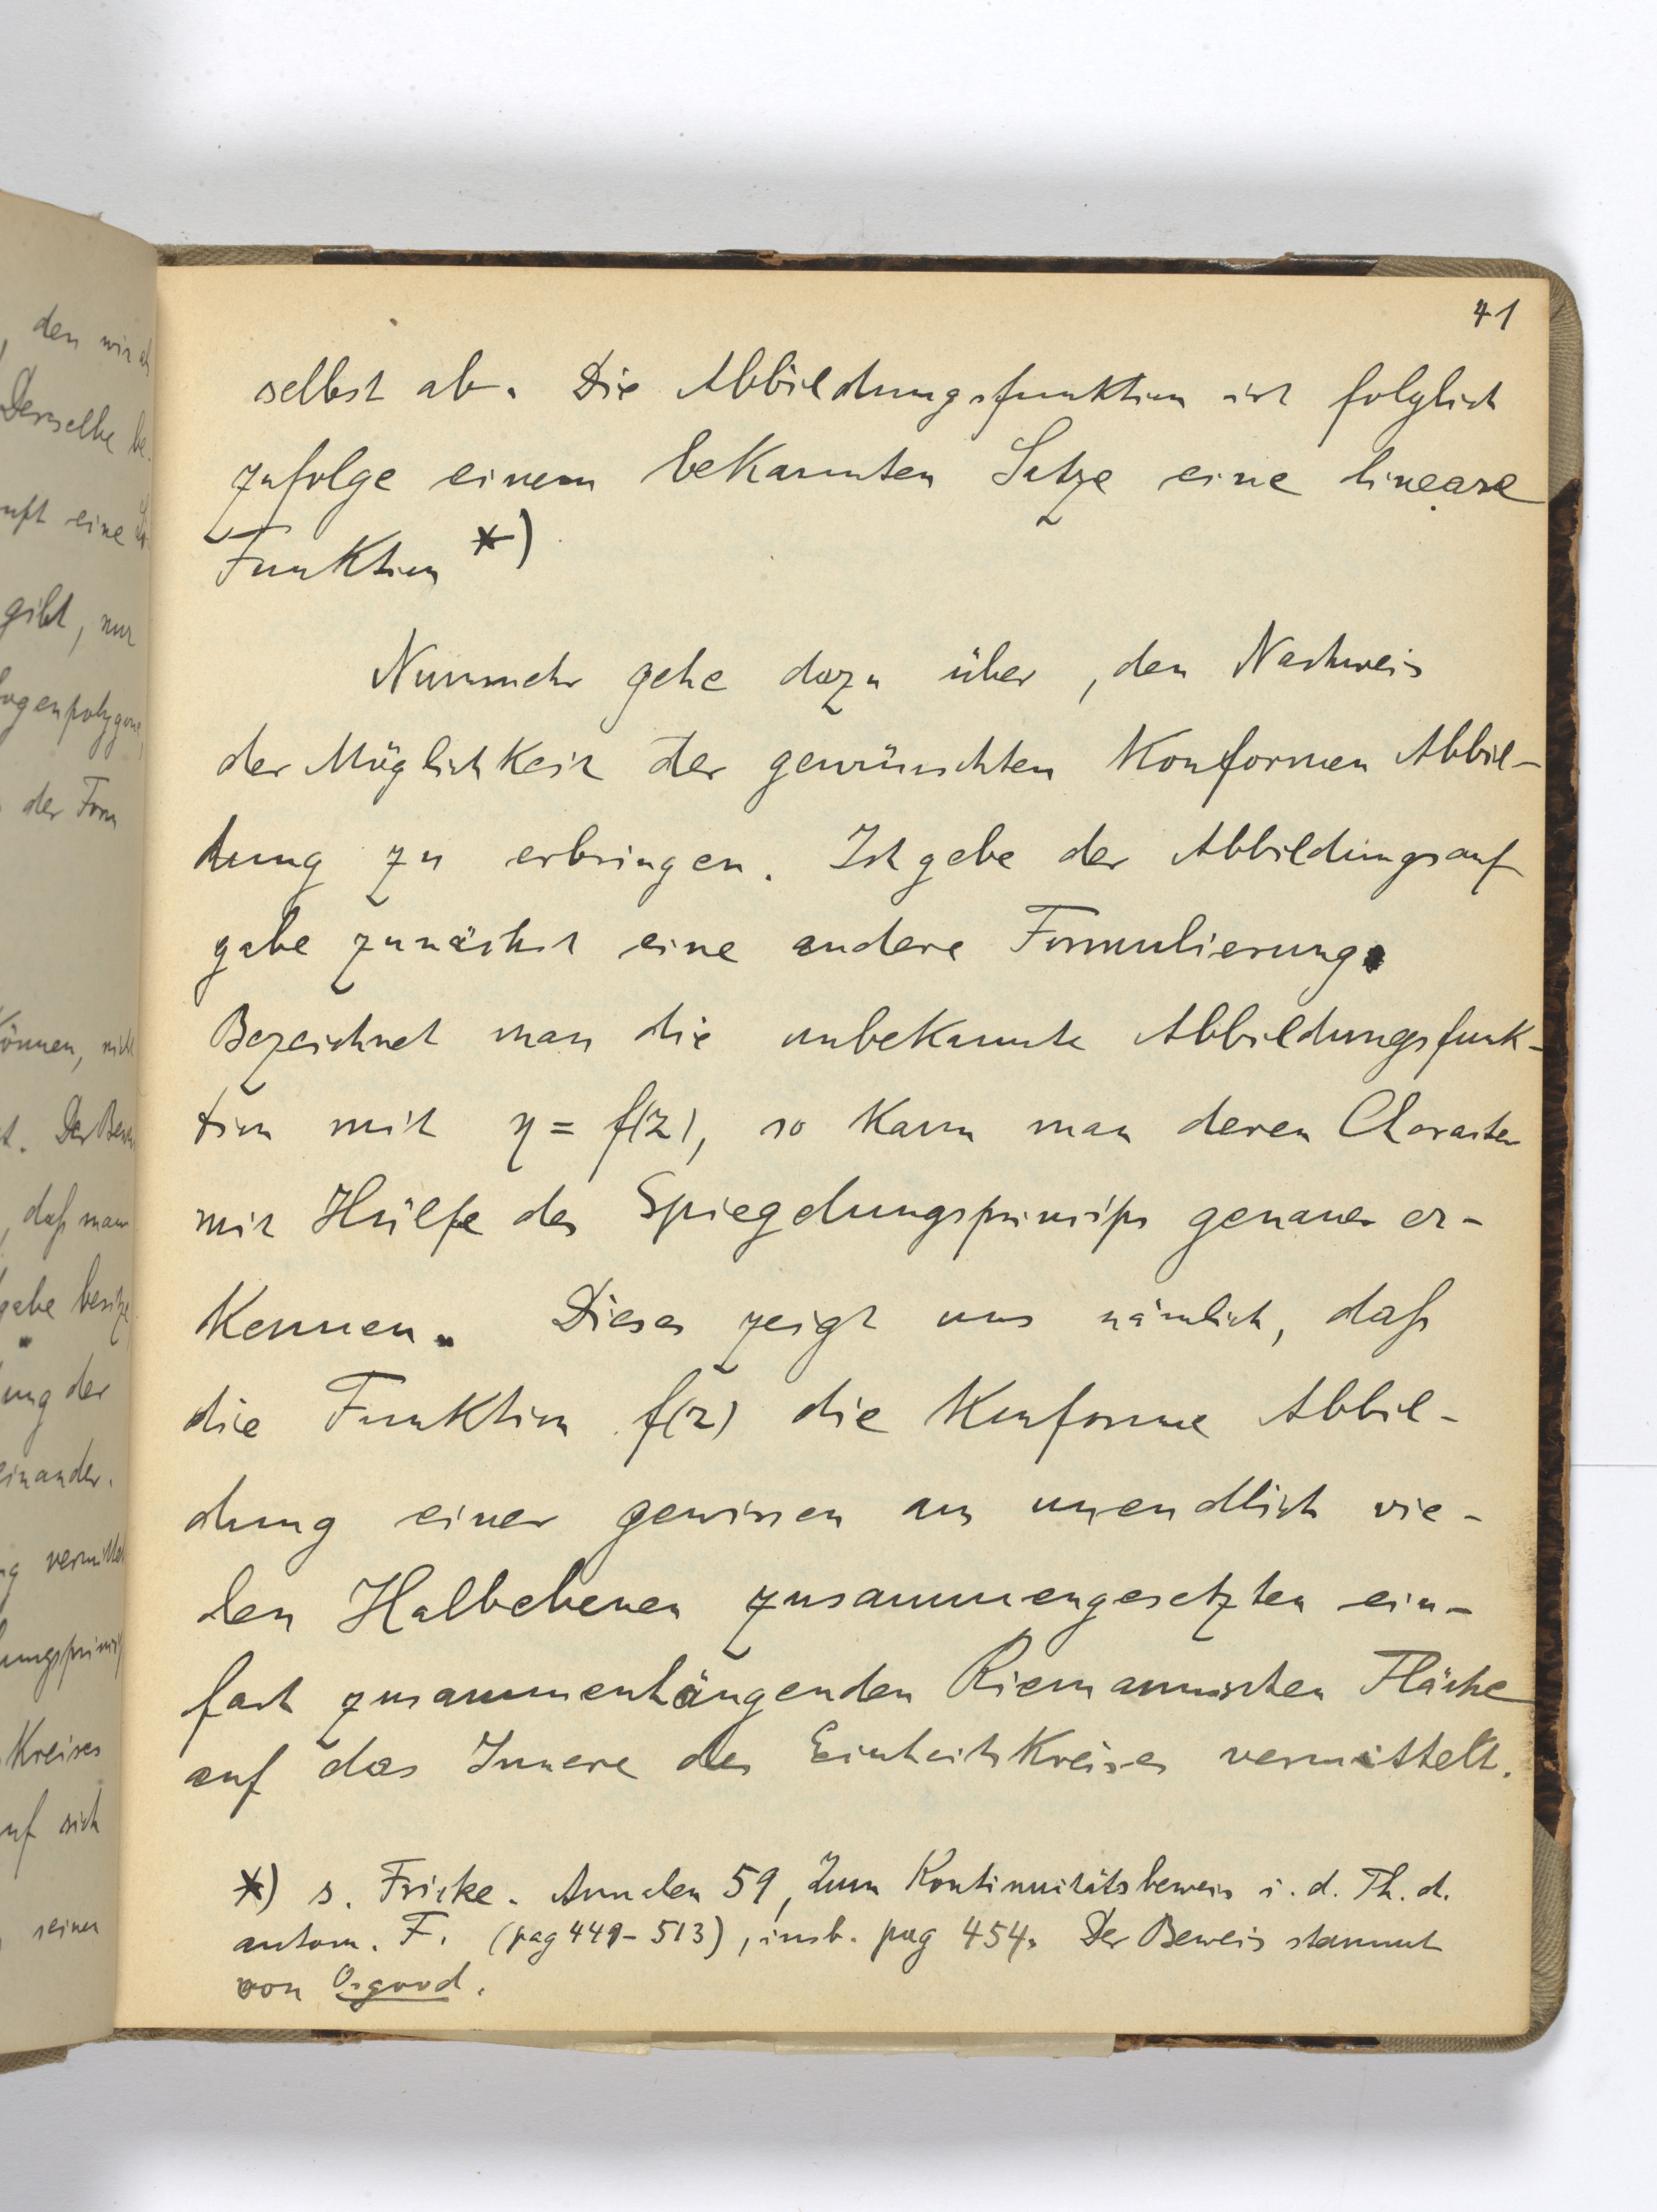 , den wir
Derselbe be-
nft eine
gibt, nur
ogenpolygone,
der Form
können, nicht
t. Der Bewe
, daß man
gabe besitze
ung der
einander.
ng vermittel
lungsprinzip
Kreises
uf sich
seiner
41
selbst ab. Die Abbildungsfunktion ist folglich
zufolge einem bekannten Satze eine lineare
Funktion *)
Nunmehr gehe dazu über, den Nachweis
der Möglichkeit der gewünschten konformen Abbil-
dung zu erbringen. Ich gebe der Abbildungsauf
gabe zunächst eine andere Formulierung.
Bezeichnet man die unbekannte Abbildungsfunk-
tion mit η = f(z), so kann man deren Character
mit Hülfe des Spiegelungsprincips genauer er-
kennen. Dieses zeigt uns nämlich, daß
die Funktion f(z) die konforme Abbil-
dung einer gewissen aus unendlich vie-
len Halbebenen zusammengesetzten ein-
fach zusammenhängenden Riemannschen Fläche
auf das Innere des Einheitskreises vermittelt.
*) s. Fricke. Annalen 59, Zum Kontinuitätsbeweis i. d. Th. d.
autom. F. (pag 449-513), insb. pag 454. Der Beweis stammt
von Osgood.